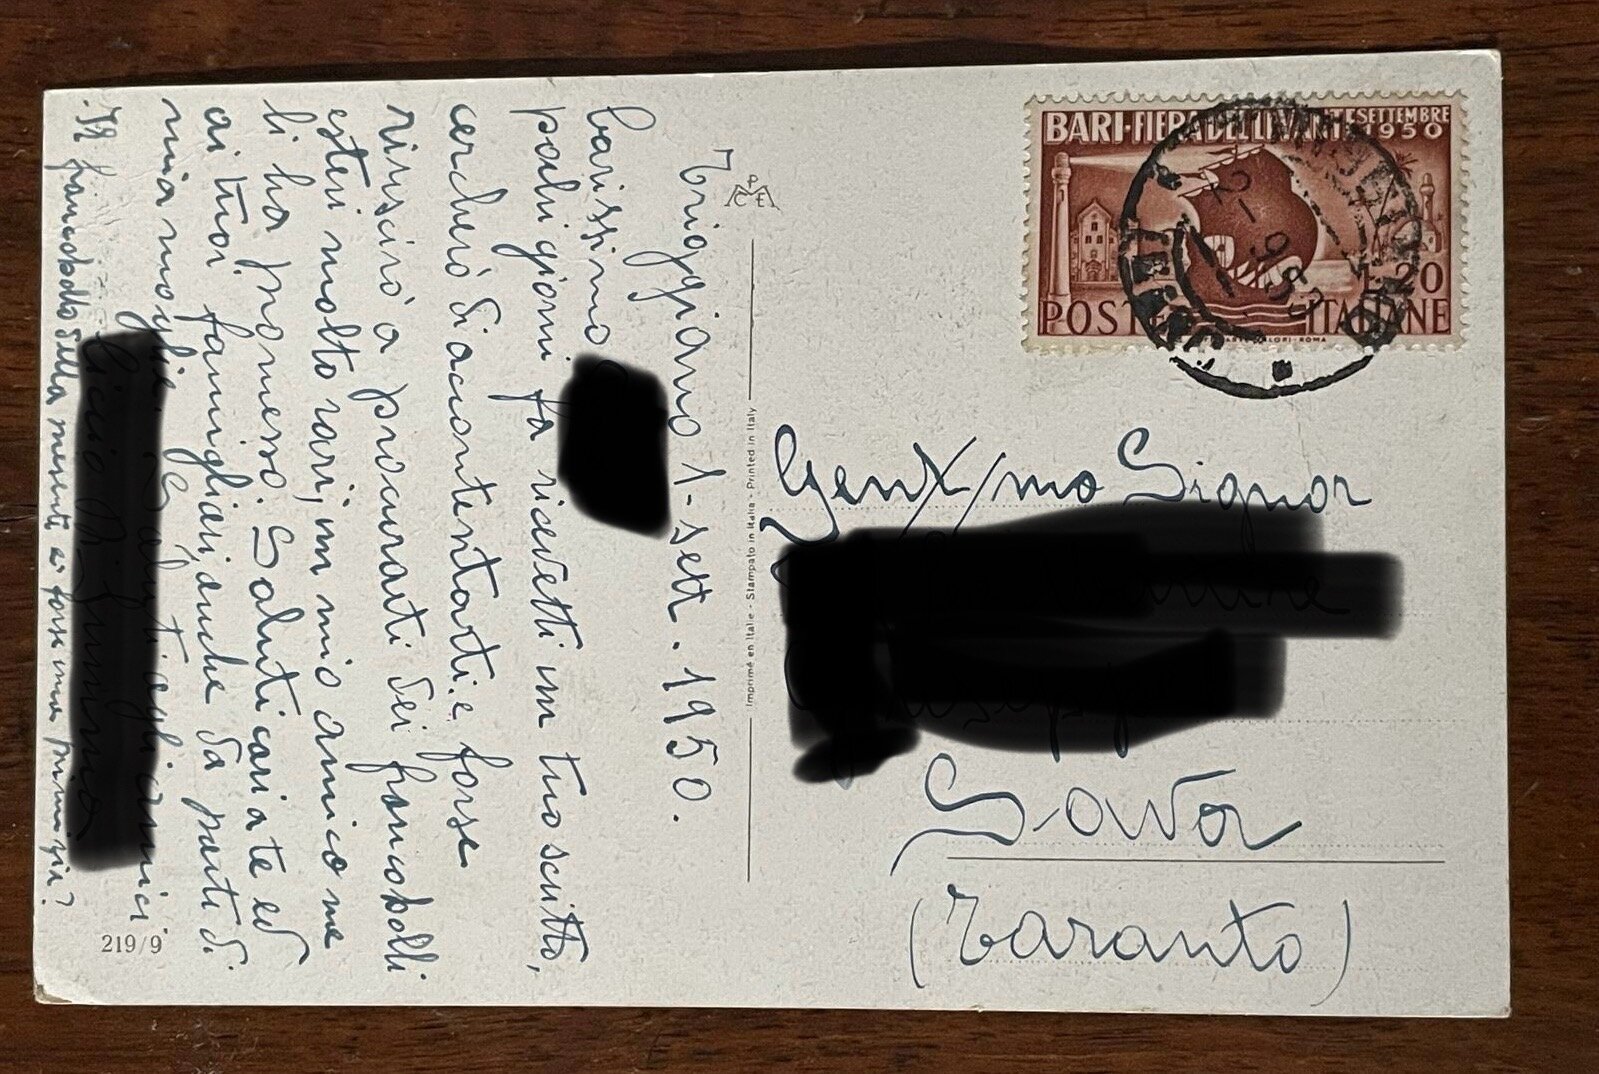 Trioggiano 1-sett. 1950.
Carissimo
pochi giorni fa ricevetti un tuo scritto,
cercherò di accontentarti e forse
riuscirò a procurarti dei francobolli
esteri molto rari, un mio amico me
li ha promesso. Saluti cari a te ed
ai tuoi famigliari anche da parte di
mia moglie. Saluti agli amici
Il francobollo della presente è forse una primizia?
219/9
PMCE
Imprimé en Italie - Stampato in Italia - Printed in Italy
BARI·FIERA DEL LEVANTE SETTEMBRE
1950
L.20
POSTE ITALIANE
Gent/mo Signor
Sava
(Taranto)